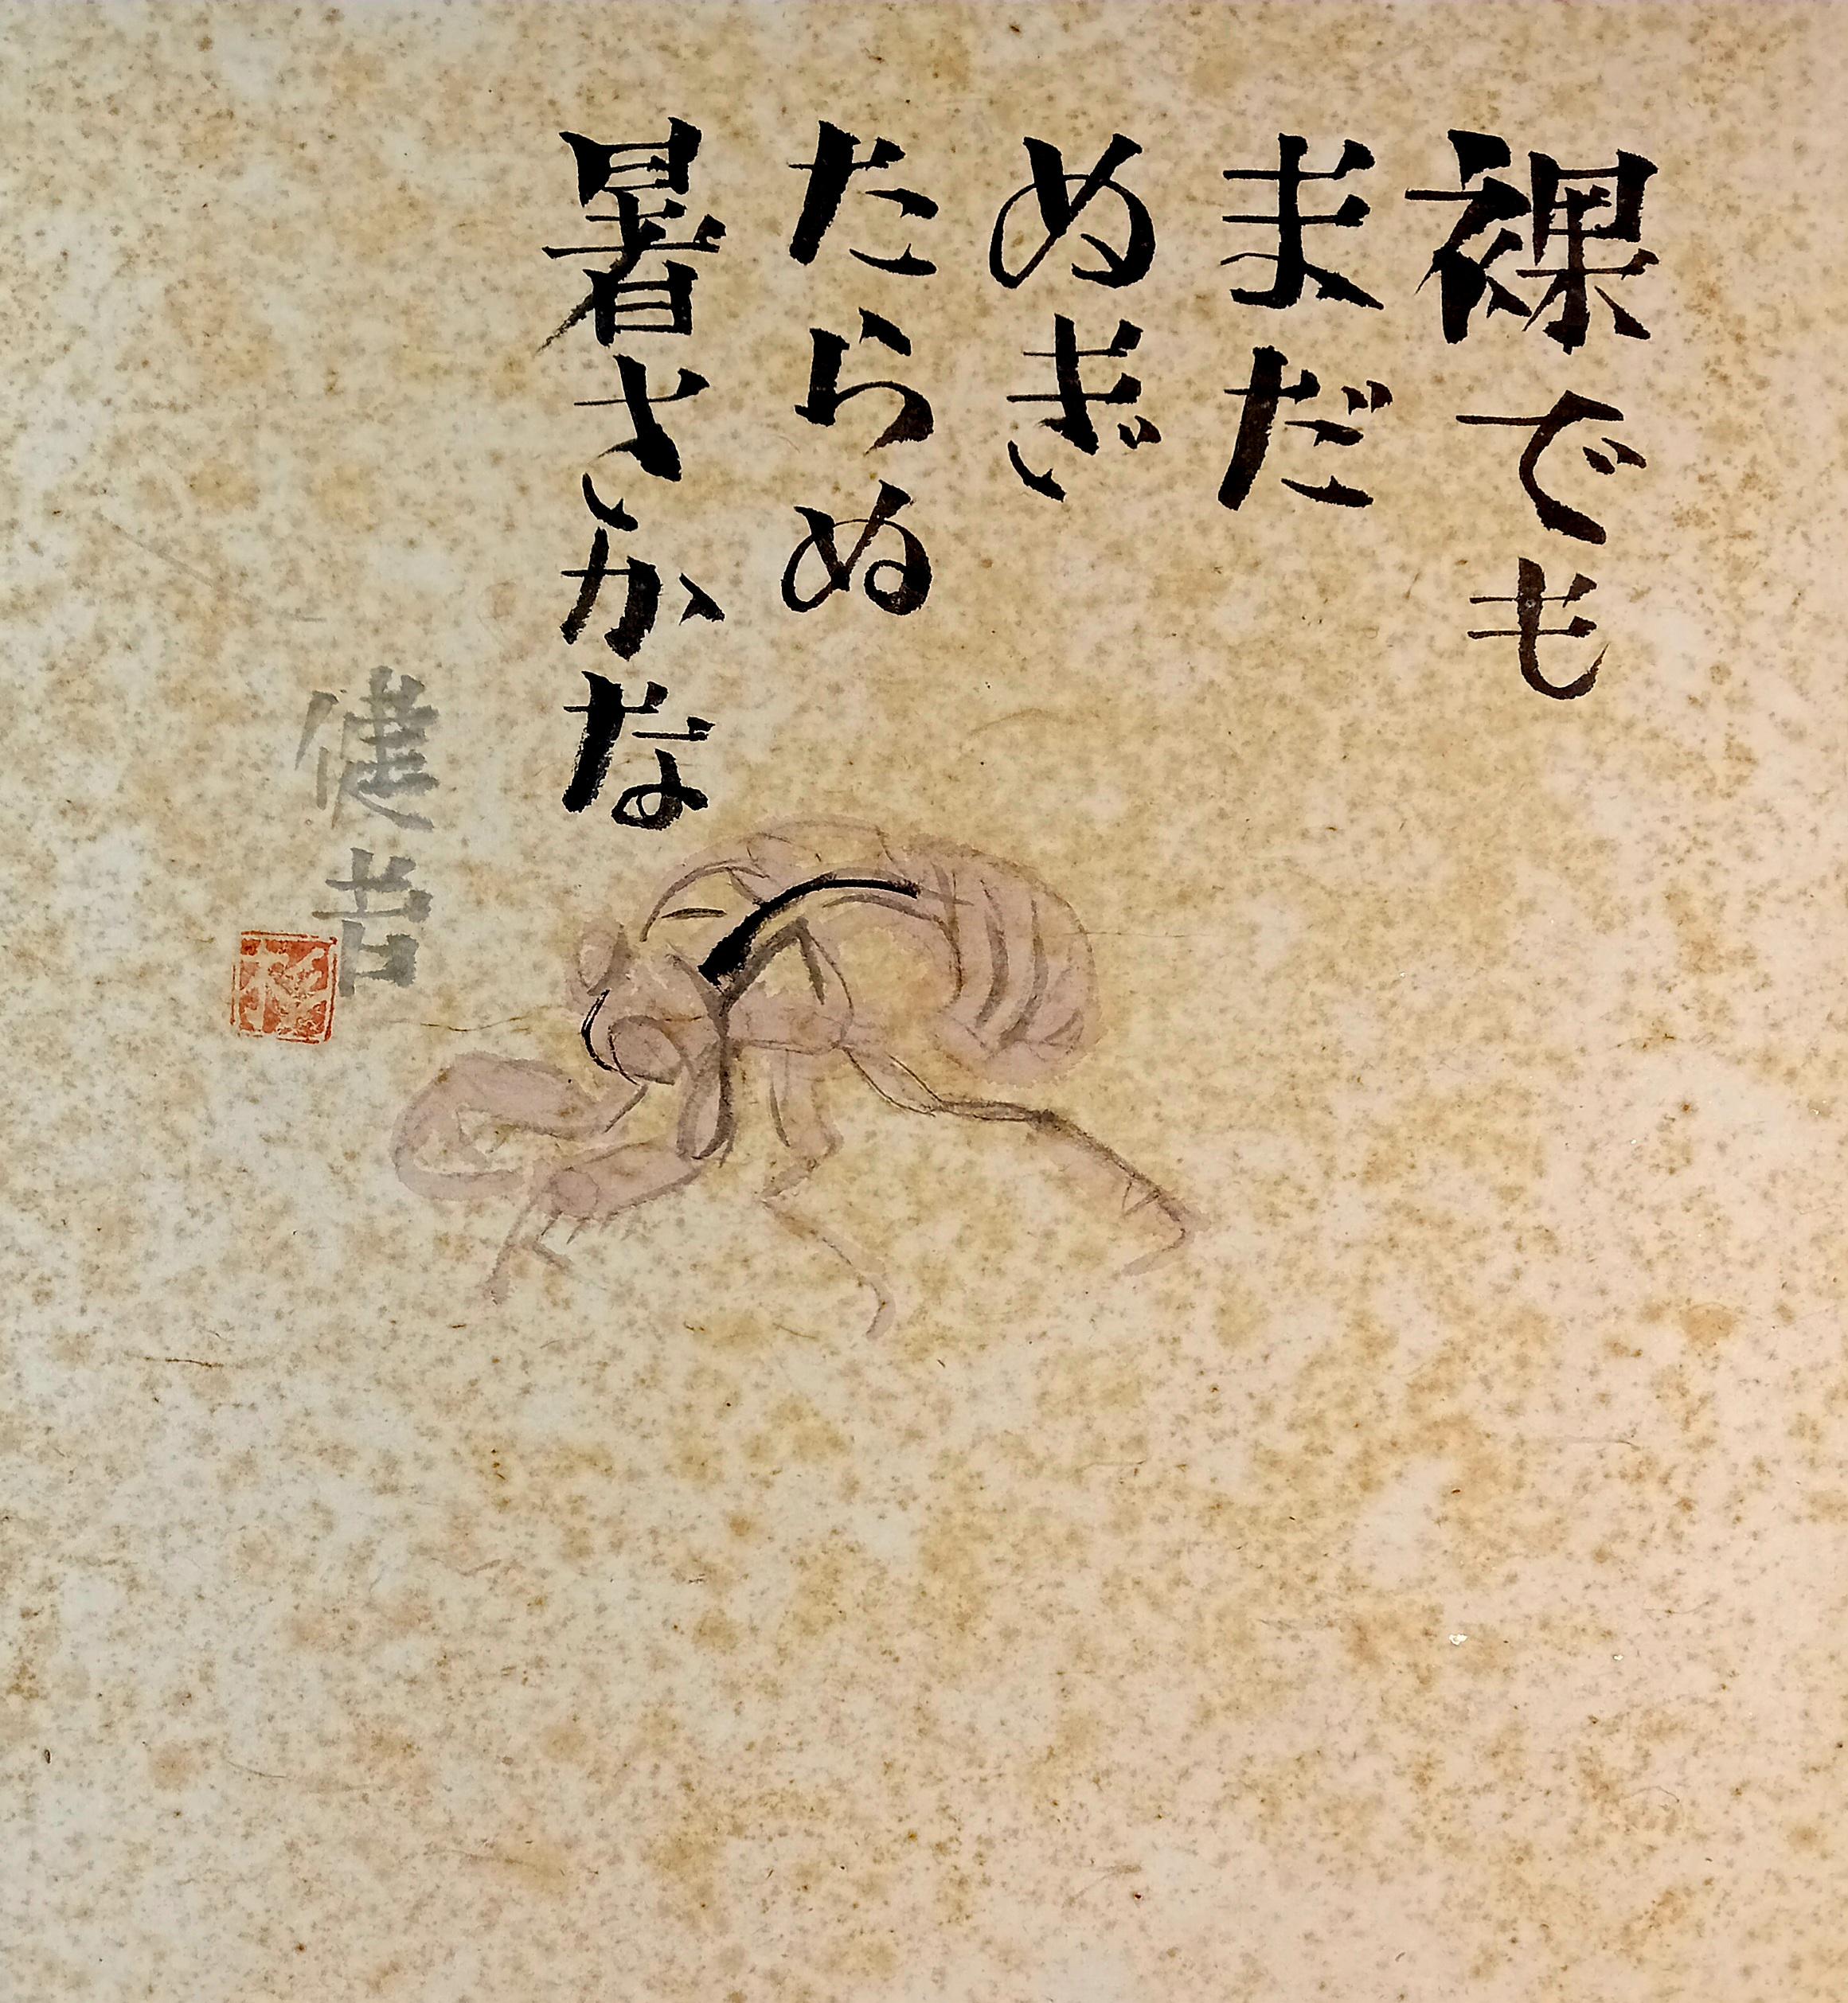 裸でも
まだ
ぬぎ
たらぬ
暑さかな
健吉